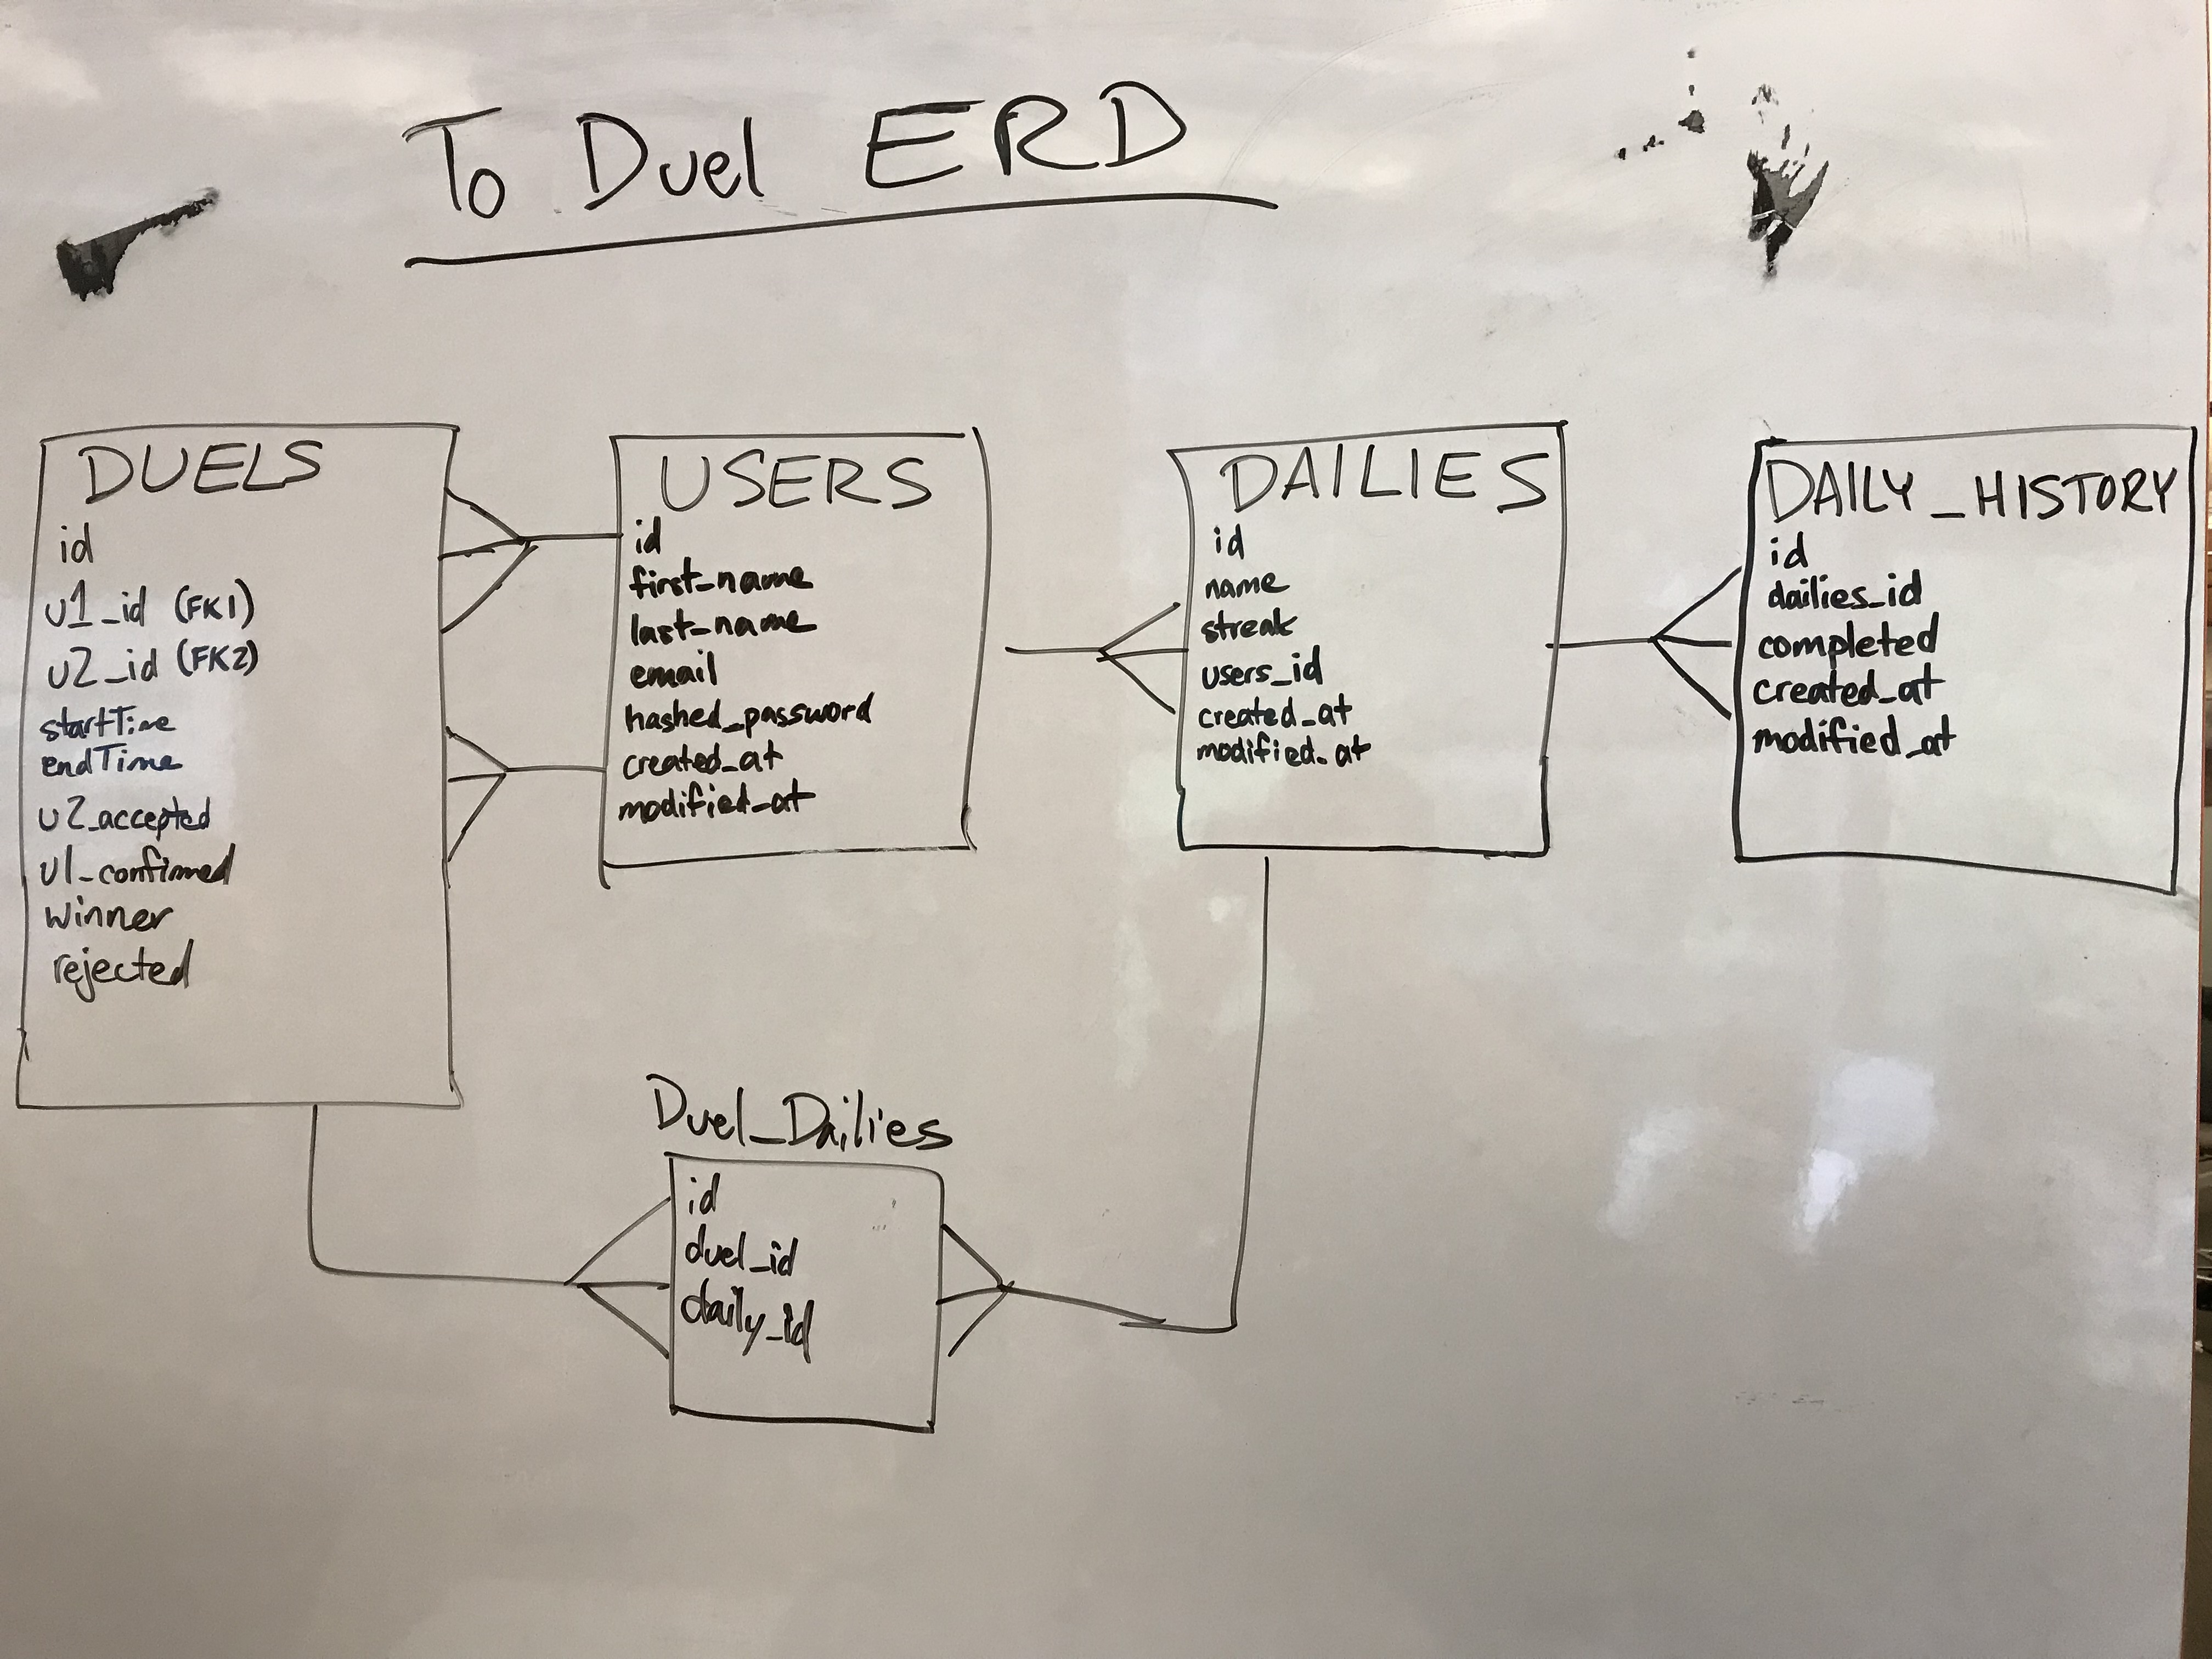 To Duel ERD
DUELS
id
u1_id (FK1)
u2_id (FK2)
startTime
endTime
u2_accepted
u1_confirmed
winner
rejected
USERS
id
first_name
last_name
email
hashed_password
created_at
modified_at
DAILIES
id
name
streak
users_id
created_at
modified_at
DAILY_HISTORY
id
dailies_id
completed
created_at
modified_at
Duel_Dailies
id
duel_id
daily_id